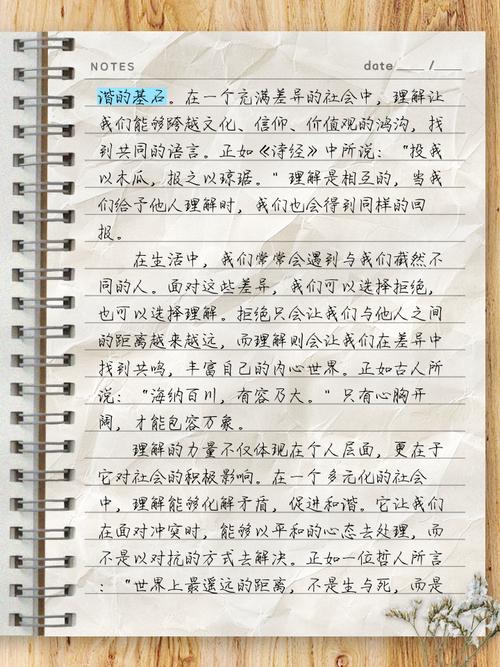 NOTES
date ____ / ____
谐的基石。在一个充满差异的社会中，理解让
我们能够跨越文化、信仰、价值观的鸿沟，找
到共同的语言。正如《诗经》中所说：“投我
以木瓜，报之以琼琚。”理解是相互的，当我
们给予他人理解时，我们也会得到同样的回
报。
在生活中，我们常常会遇到与我们截然不
同的人。面对这些差异，我们可以选择拒绝，
也可以选择理解。拒绝只会让我们与他人之间
的距离越来越远，而理解则会让我们在差异中
找到共鸣，丰富自己的内心世界。正如古人所
说：“海纳百川，有容乃大。”只有心胸开
阔，才能包容万象。
理解的力量不仅体现在个人层面，更在于
它对社会的积极影响。在一个多元化的社会
中，理解能够化解矛盾，促进和谐。它让我们
在面对冲突时，能够以平和的心态去处理，而
不是以对抗的方式去解决。正如一位哲人所言
：“世界上最遥远的距离，不是生与死，而是